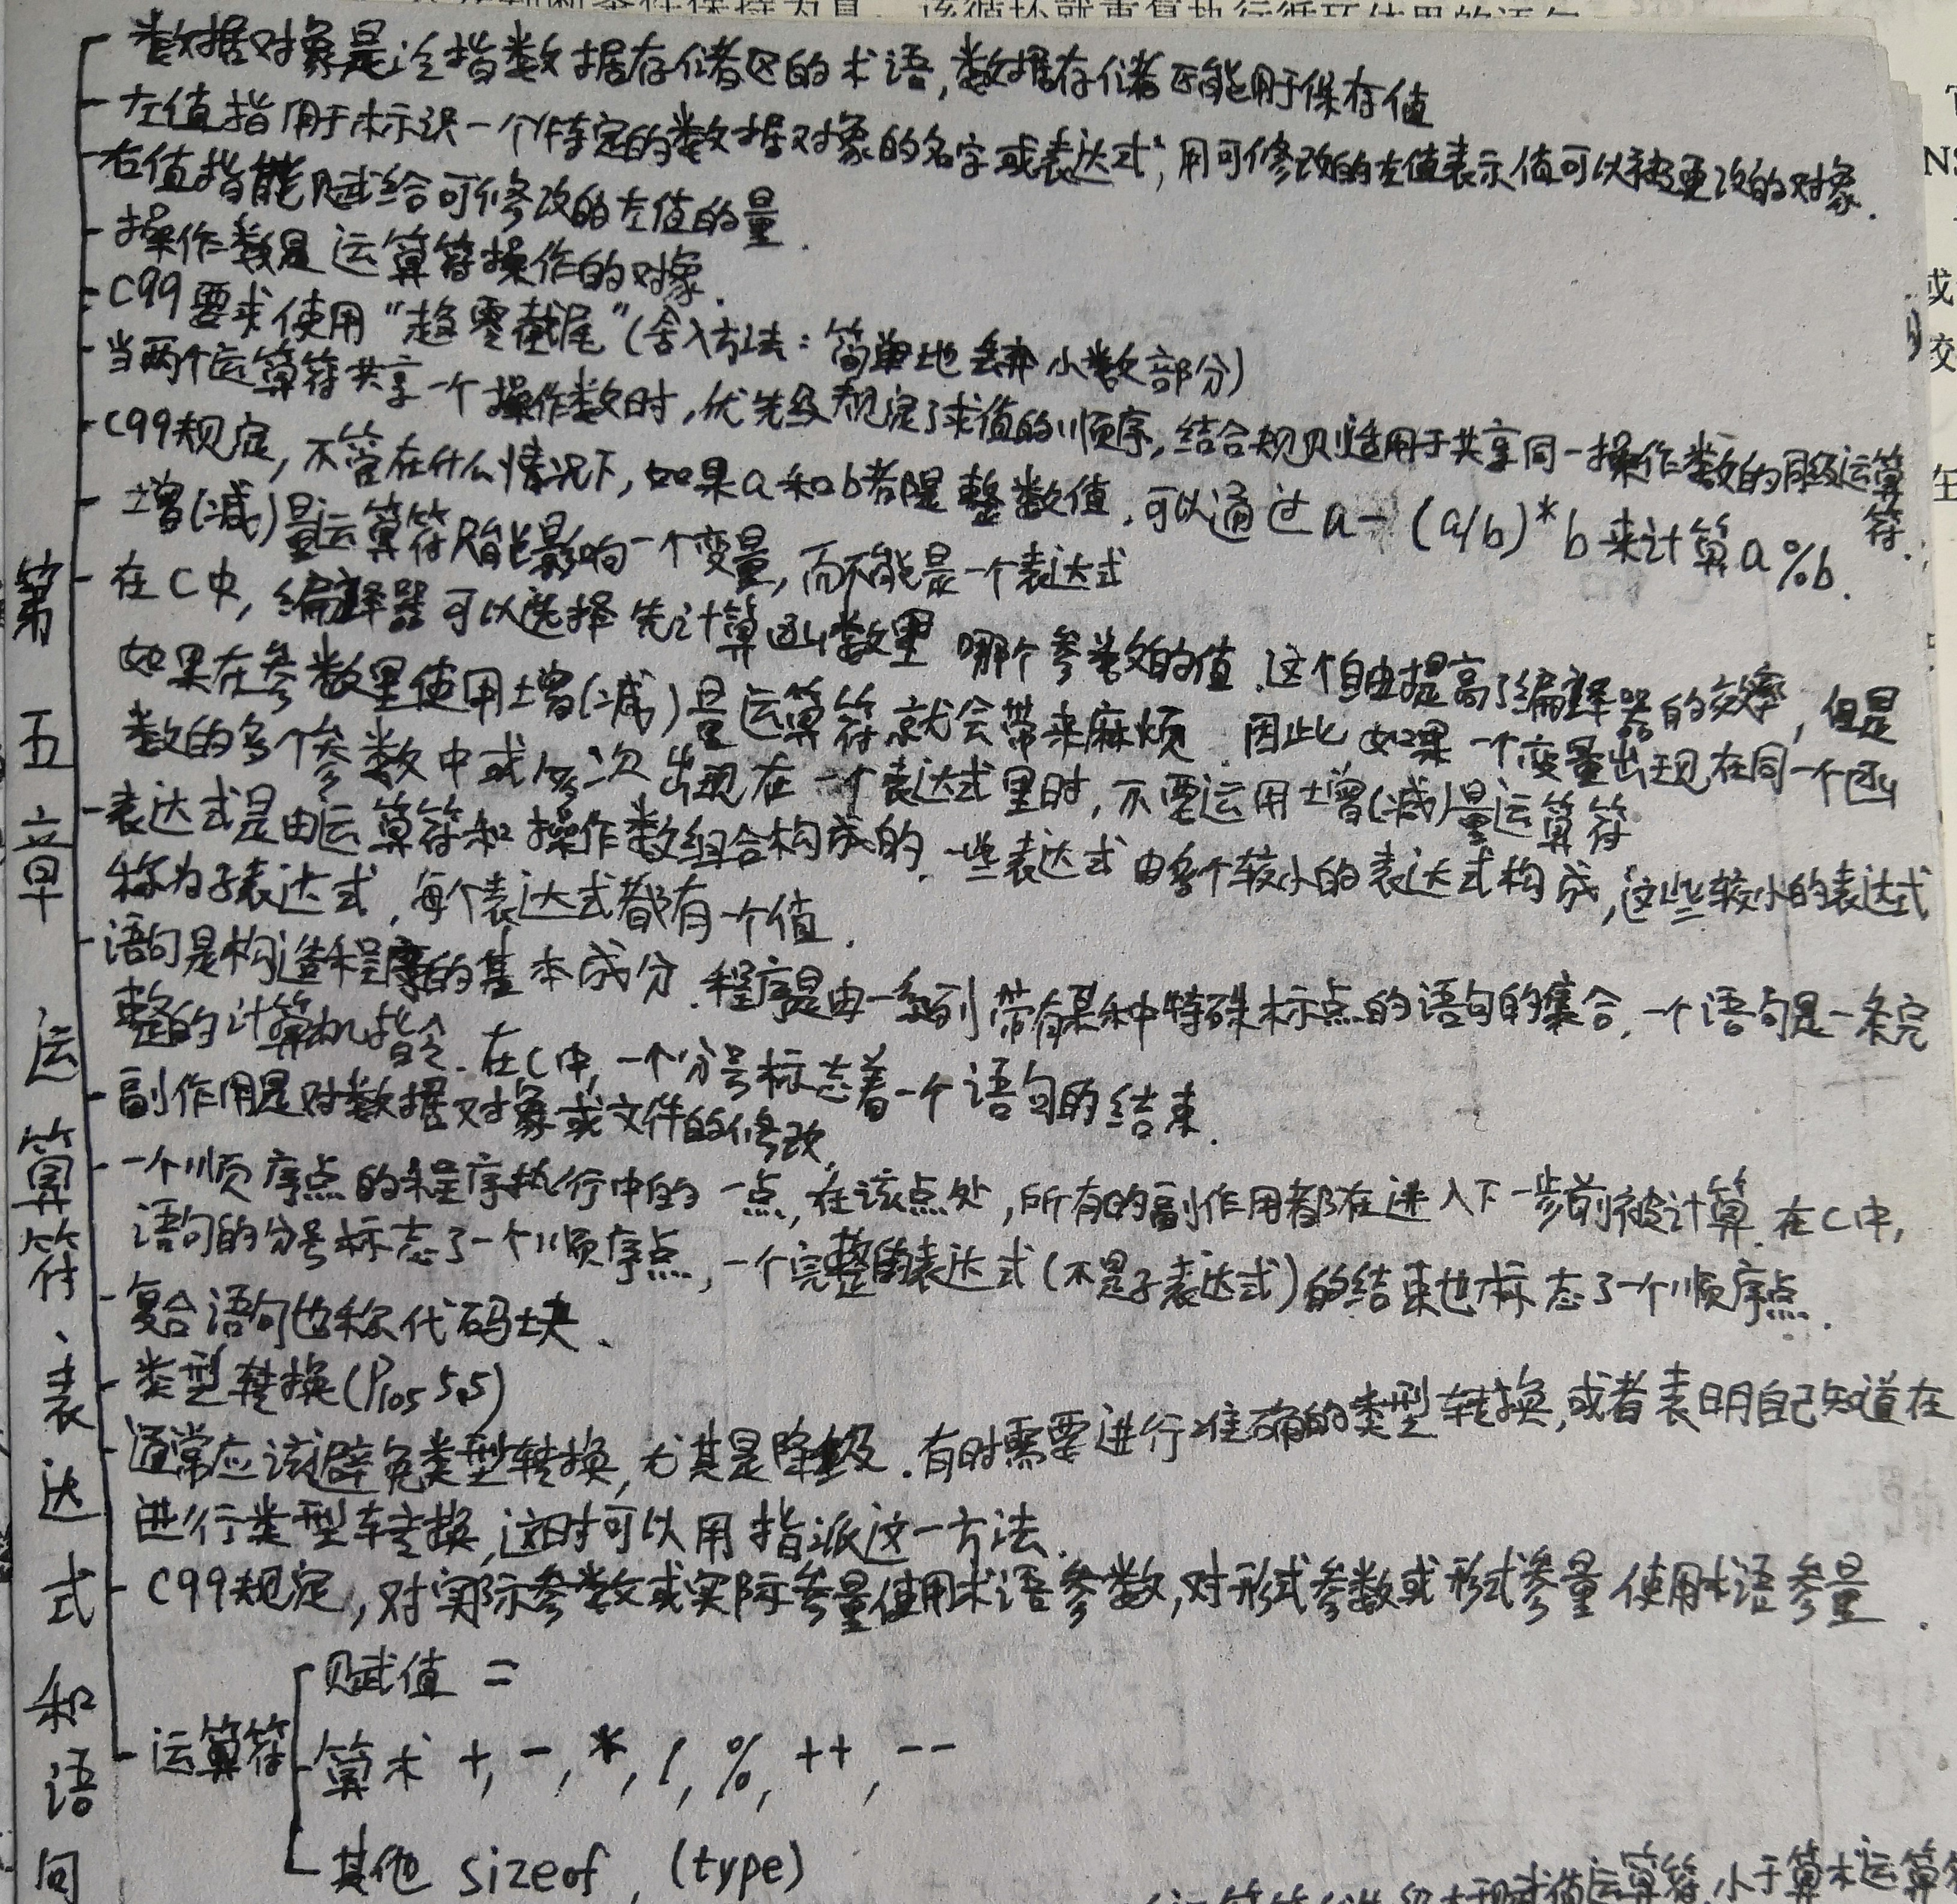 数据对象是泛指数据存储区的术语,数据存储区能用于保存值
左值指用于标识一个特定的数据对象的名字或表达式,用可修改的左值表示值可以被更改的对象.
右值指能赋给可修改的左值的量.
操作数是运算符操作的对象.
C99要求使用"趋零截尾"(舍入方法:简单地丢弃小数部分)
当两个运算符共享一个操作数时,优先级规定了求值的顺序,结合规则适用于共享同一操作数的同级运算符.
C99规定,不管在什么情况下,如果a和b都是整数值,可以通过a-(a/b)*b来计算a%b.
增(减)量运算符只能影响一个变量,而不能是一个表达式
在C中,编译器可以选择先计算函数里哪个参数的值.这个自由提高了编译器的效率,但是
如果在参数里使用增(减)量运算符就会带来麻烦.因此如果一个变量出现在同一个函
数的多个参数中或多次出现在一个表达式里时,不要运用增(减)量运算符
表达式是由运算符和操作数组合构成的.一些表达式由多个较小的表达式构成,这些较小的表达式
称为子表达式,每个表达式都有一个值.
语句是构造程序的基本成分.程序是由一系列带有某种特殊标点的语句的集合.一个语句是一条完
整的计算机指令.在C中,一个分号标志着一个语句的结束.
副作用是对数据对象或文件的修改.
一个顺序点的程序执行中的一点,在该点处,所有的副作用都在进入下一步前被计算.在C中,
语句的分号标志了一个顺序点,一个完整的表达式(不是子表达式)的结束也标志了一个顺序点.
复合语句也称代码块.
类型转换(P105 5.5)
通常应该避免类型转换,尤其是降级.有时需要进行准确的类型转换,或者表明自己知道在
进行类型转换,这时可以用指派这一方法.
C99规定,对实际参数或实际参量使用术语参数,对形式参数或形式参量使用术语参量.
运算符
赋值 =
算术 +,-,*,/,%,++,--
其他 sizeof,(type)
第五章 运算符、表达式和语句